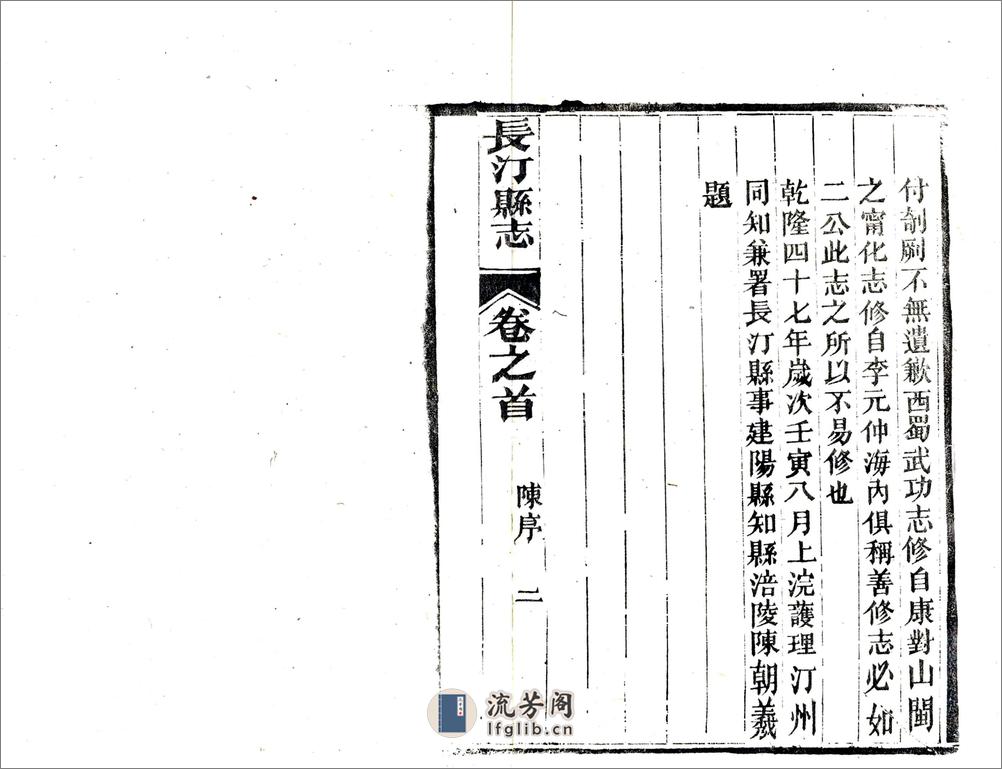 付剞劂不無遺歉西蜀武功志修自康對山閩
之甯化志修自李元仲海內俱稱善修志必如
二公此志之所以不易修也
乾隆四十七年歲次壬寅八月上浣護理汀州
同知兼署長汀縣事建陽縣知縣涪陵陳朝羲
題
長汀縣志 卷之首 陳序 二
流芳阁
lfglib.cn